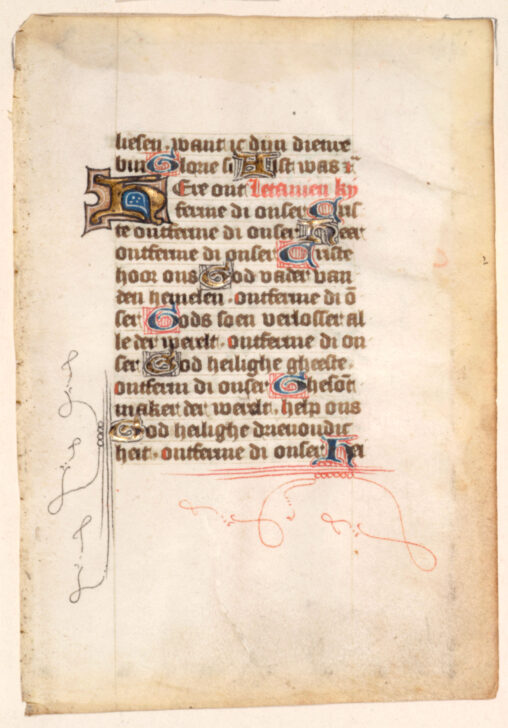 liesen · want ic dyn dienre
bin Glorie si Alst was ī
Ere ont Letanien ky
ferme di onser Cris
te ontferme di onser Heer
ontferme di onser Criste
hoor ons God vader van
den hemelen · ontferme di ō
ser Gods soen verlosser al
le der werelt · ontferme di on
ser God heilighe gheeste ·
ontferm di onser Ghesōt
maker der werelt · help ons
God heilighe drievoudic
heit · ontferme di onser Hei